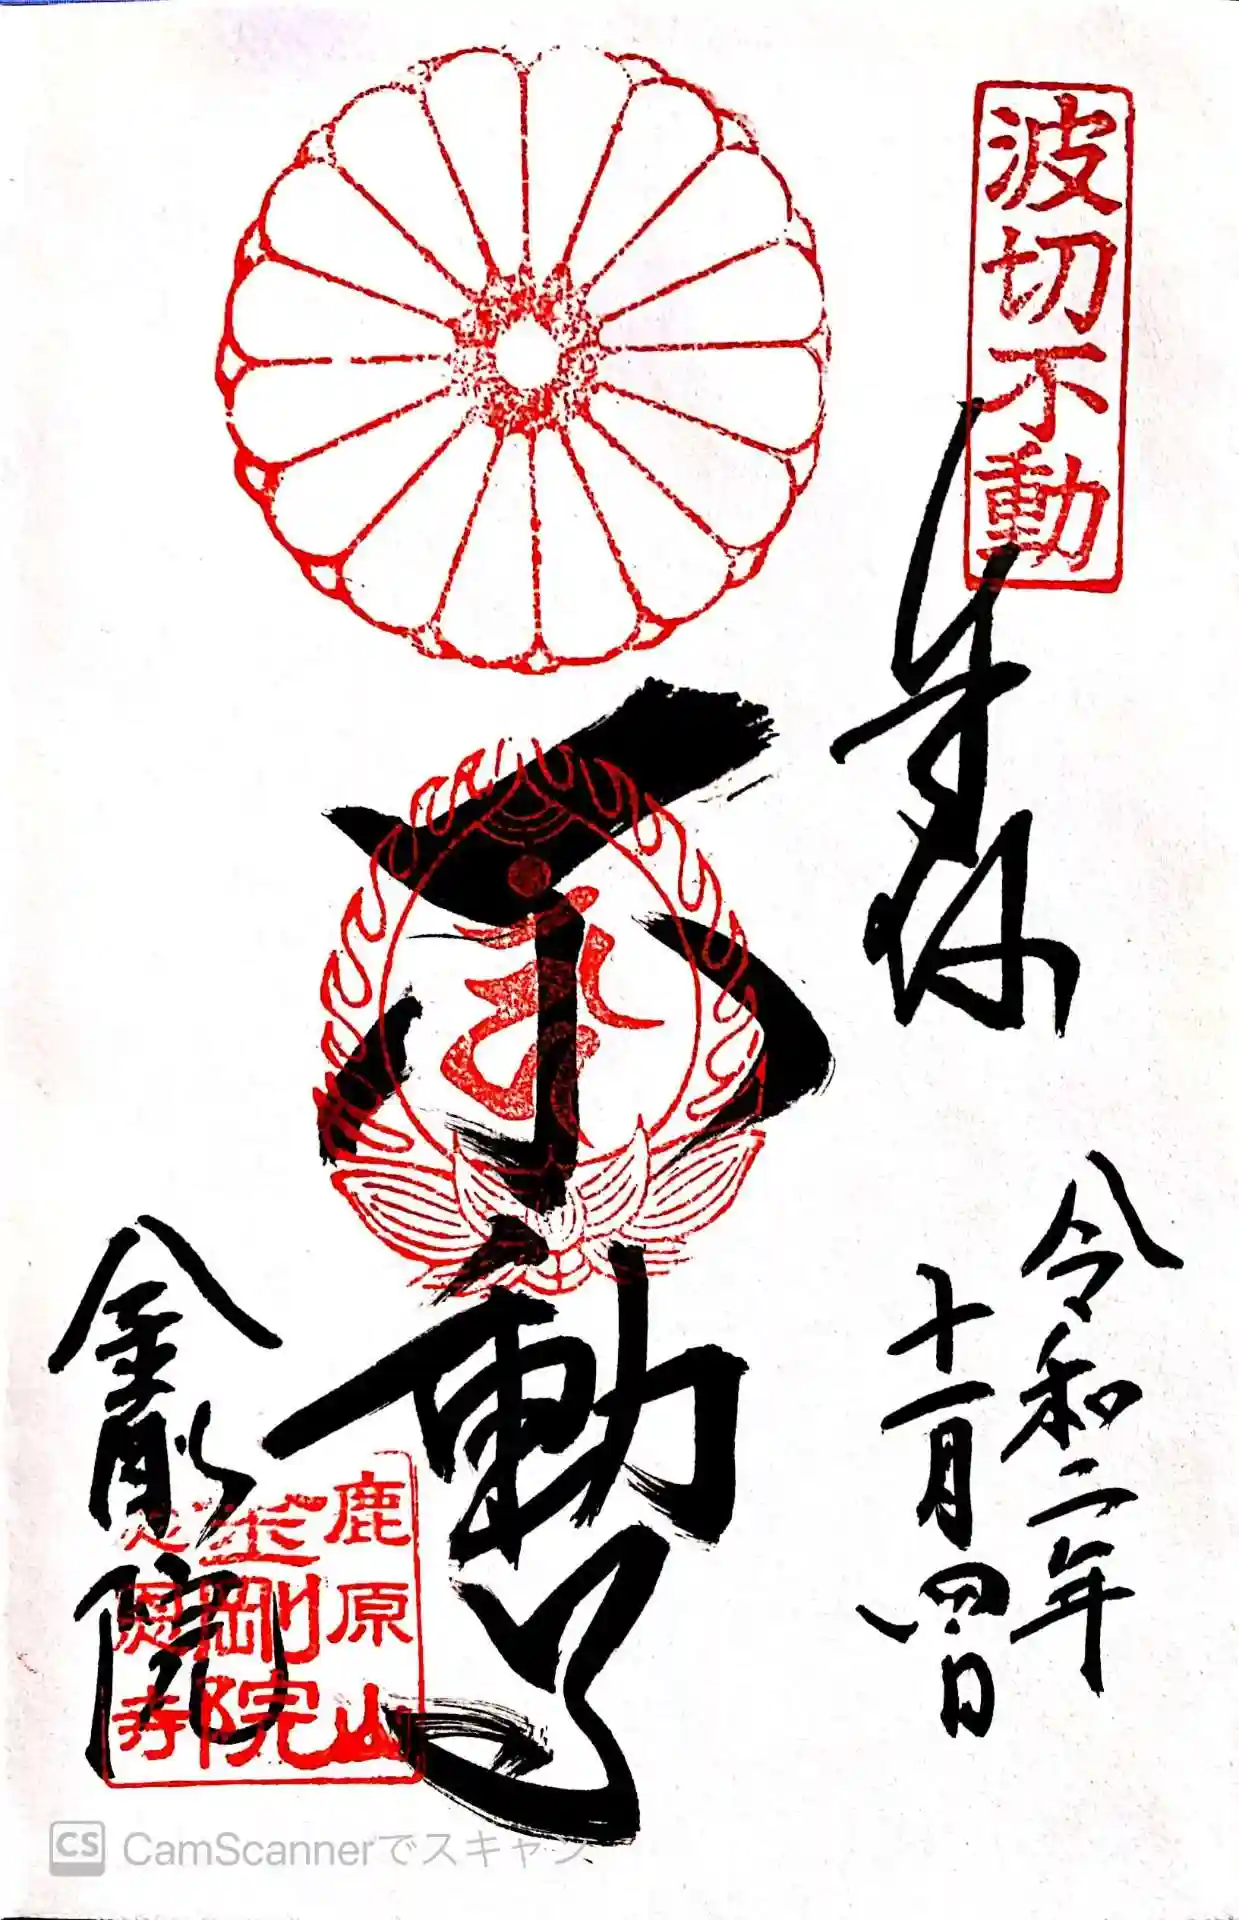 波切不動
奉拝
令和二年
十一月四日
不動尊
金剛院
鹿原山
金剛院
慈恩寺
CamScannerでスキャン